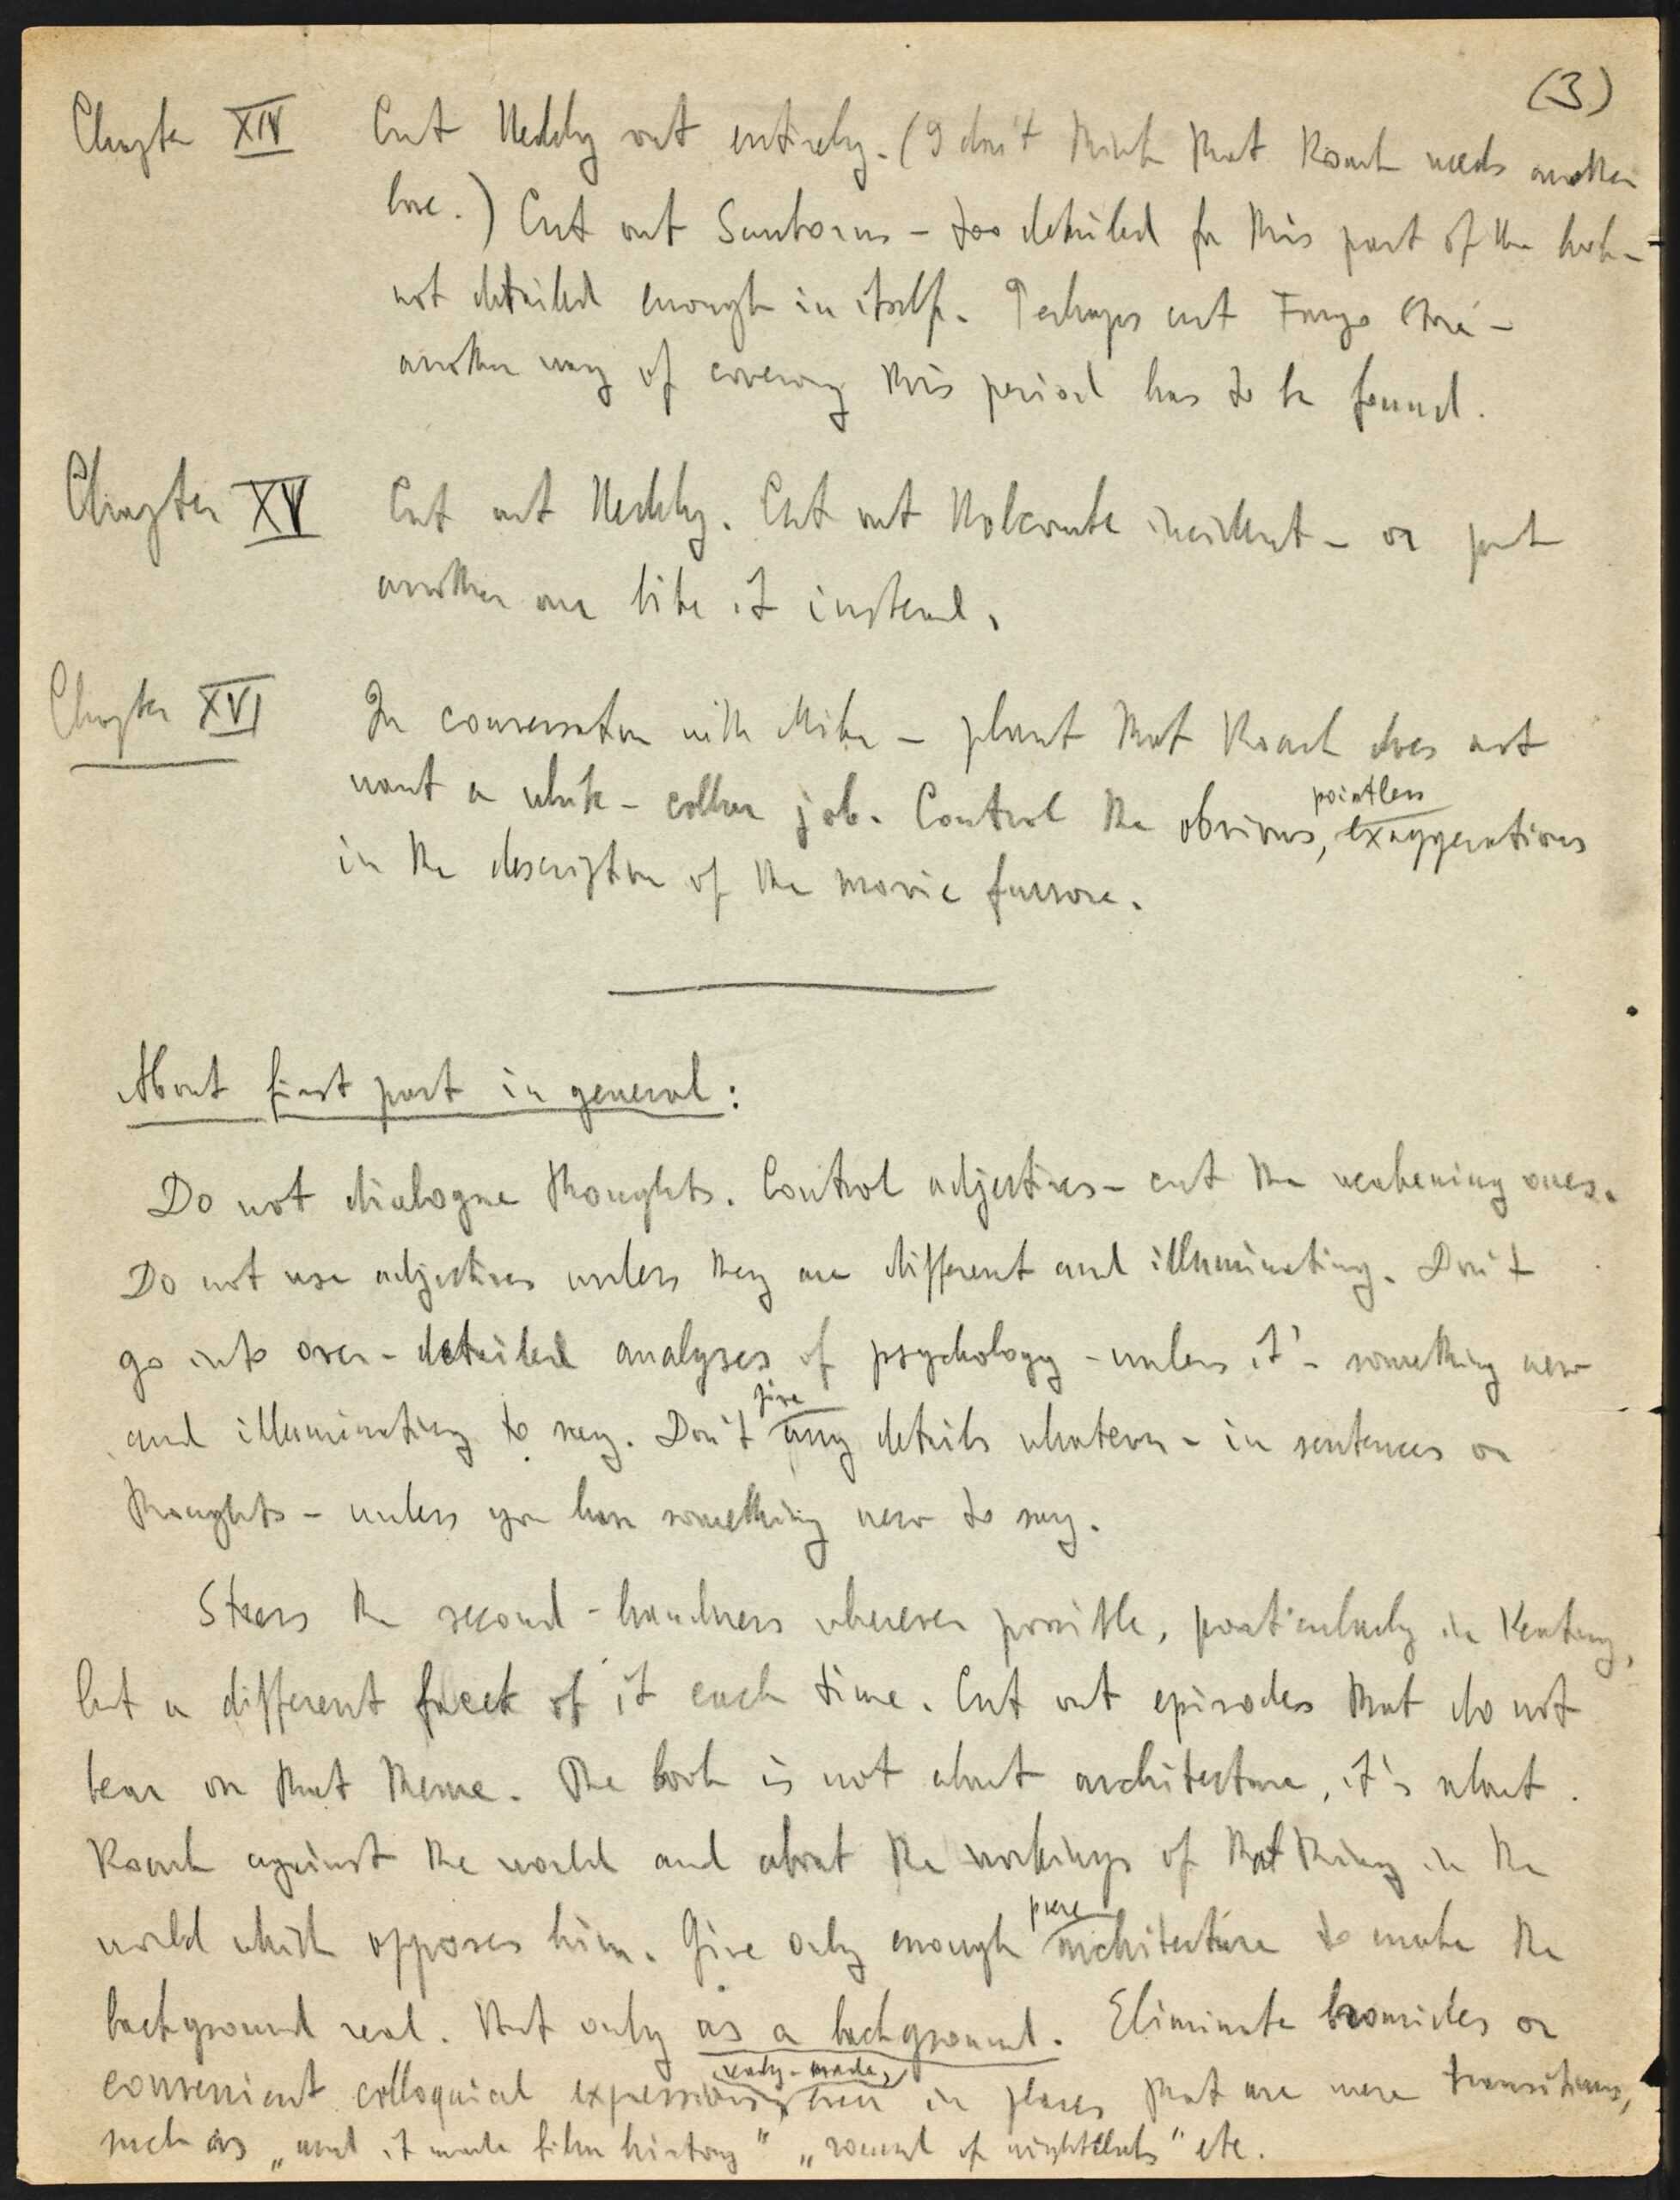 (3)
Chapter XIV Cut Neddy out entirely. (I don't think that Roark needs another
love.) Cut out Sanborns – too detailed for this part of the book –
not detailed enough in itself. Perhaps cut Fargo Store –
another way of covering this period has to be found.
Chapter XV Cut out Neddy. Cut out incident – or put
another one like it instead.
Chapter XVI In conversation with Mike – plant that Roark does not
want a white-collar job. Control the obvious, pointless exaggerations
in the description of the movie furrore.
About first part in general:
Do not dialogue thoughts. Control adjectives – cut the weakening ones.
Do not use adjectives unless they are different and illuminating. Don't
go into over-detailed analyses of psychology – unless it's something new
and illuminating to say. Don't give any details whatever – in sentences or
thoughts – unless you have something new to say.
Stress the second-handness wherever possible, particularly in Keating,
but a different facet of it each time. Cut out episodes that do not
bear on that theme. The book is not about architecture, it's about
Roark against the world and about the workings of that thing in the
world which opposes him. Give only enough pure architecture to make the
background real. But only as a background. Eliminate bromides or
convenient colloquial expressions, ready-made, even in places that are mere transitions,
such as „and it made film history" „round of nightclubs" etc.